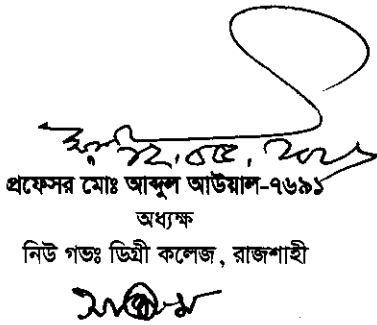 প্রফেসর মোঃ আব্দুল আউয়াল-৭৬৯১
অধ্যক্ষ
নিউ গভঃ ডিগ্রী কলেজ, রাজশাহী